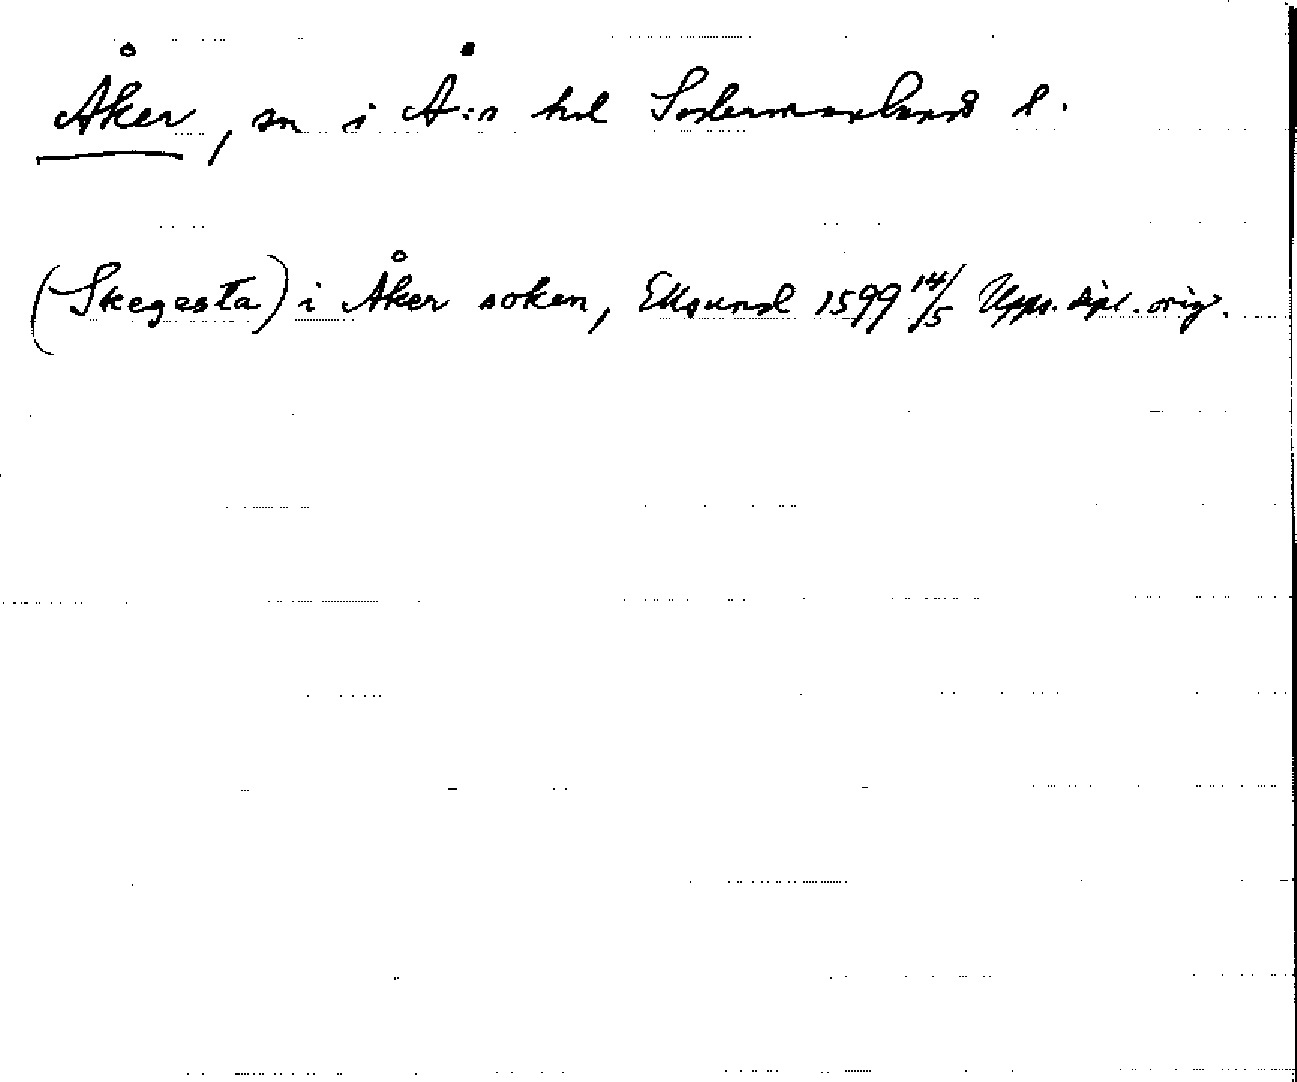 Åker, sn i Å:s hd Södermanlands l.
(Skegesta) i Åker soken, Eksund 1599 14/5 Upps. dipl. orig.